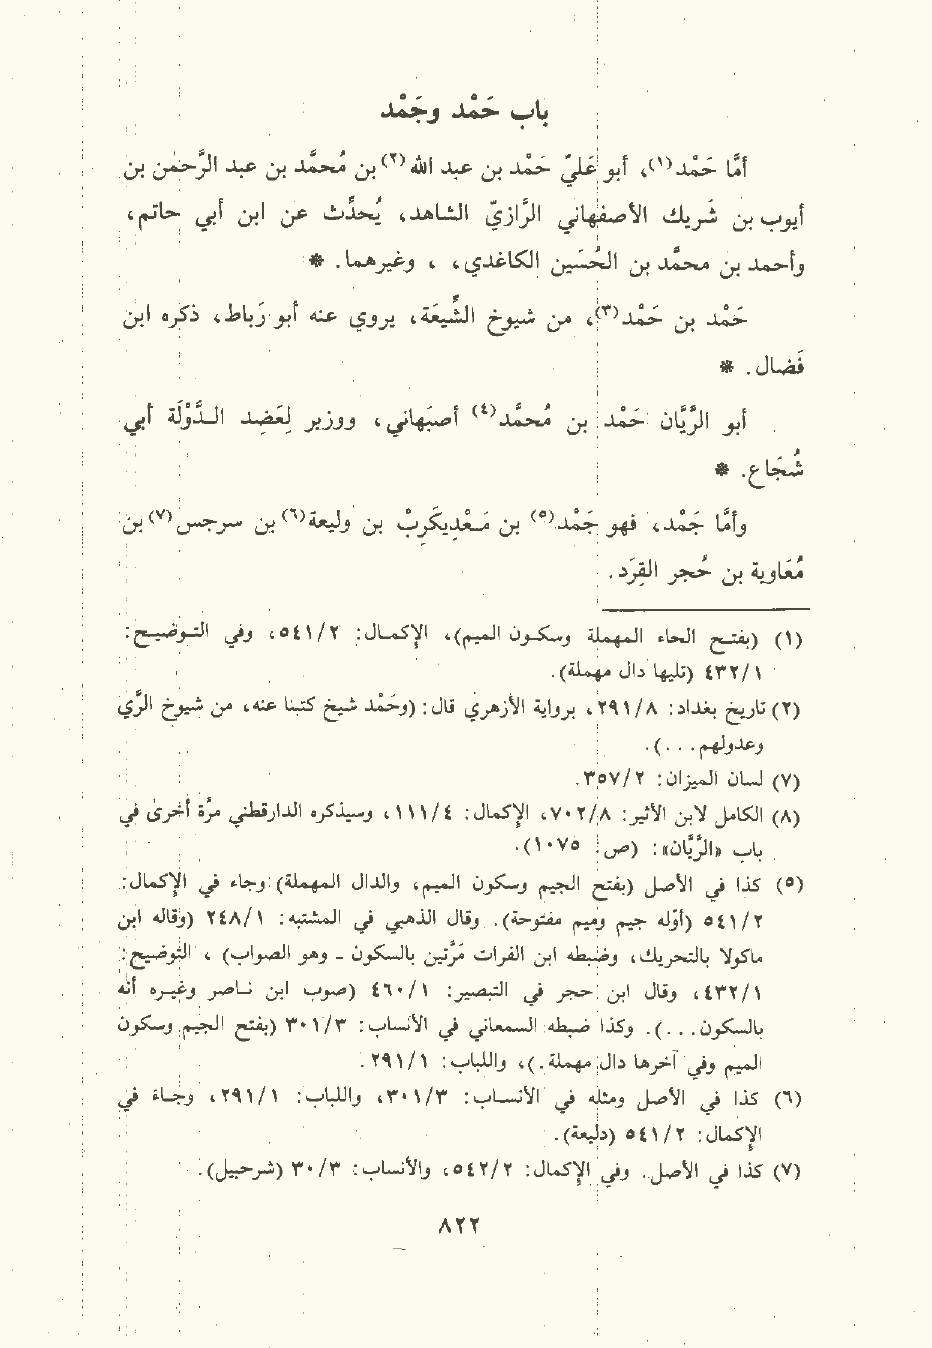 باب حَمْد وجَمْد
أمَّا حَمْد(١)، أبو عَليّ حَمْد بن عبد الله(٢) بن مُحمَّد بن عبد الرَّحمٰن بن
أيوب بن شَريك الأصفهاني الرَّازيّ الشاهد، يُحدِّث عن ابن أبي حاتم،
وأحمد بن محمَّد بن الحُسَين الكاغدي، ، وغيرهما. *
حَمْد بن حَمْد(٣)، من شيوخ الشِّيعَة، يروي عنه أبو رَباط، ذكره ابن
فَضال. *
أبو الرَّيَّان حَمْد بن مُحمَّد(٤) أصبَهاني، ووزير لِعَضِد الـدَّوْلَة أبي
شُجَاع. *
وأمَّا جَمْد، فهو جَمْد(٥) بن مَـعْـدِيكَرِبْ بن وليعة(٦) بن سرجس(٧) بن
مُعَاوية بن حُجر القِرَد.
(١) (بفتـح الحاء المهملة وسـكون الميم)، الإكمـال: ٥٤١/٢، وفي التـوضيـح:
٤٣٢/١ (تليها دال مهملة).
(٢) تاريخ بغداد: ٢٩١/٨، برواية الأزهري قال: (وحَمْد شيخ كتبنا عنه، من شيوخ الرَّي
وعدولهم. . .).
(٧) لسان الميزان: ٣٥٧/٢.
(٨) الكامل لابن الأثير: ٧٠٢/٨، الإكمال: ١١١/٤، وسيذكره الدارقطني مرة أخرى في
باب «الرَّيَّان»: (ص: ١٠٧٥).
(٥) كذا في الأصل (بفتح الجيم وسكون الميم، والدال المهملة) وجاء في الإكمال:
٥٤١/٢ (أوّله جيم وميم مفتوحة). وقال الذهبي في المشتبه: ٢٤٨/١ (وقاله ابن
ماكولا بالتحريك، وضبطه ابن الفرات مَرَّتين بالسكون - وهو الصواب) ، التوضيح:
٤٣٢/١، وقال ابن حجر في التبصير: ٤٦٠/١ (صوب ابن نـاصر وغيـره أنه
بالسكون. . .). وكذا ضبطه السمعاني في الأنساب: ٣٠١/٣ (بفتح الجيم وسكون
الميم وفي آخرها دال مهملة.)، واللباب: ٢٩١/١.
(٦) كذا في الأصل ومثله في الأنسـاب: ٣٠١/٣، واللباب: ٢٩١/١، وجـاء في
الإكمال: ٥٤١/٢ (دليعة).
(٧) كذا في الأصل. وفي الإكمال: ٥٤٢/٢، والأنساب: ٣٠/٣ (شرحبيل).
٨٢٢